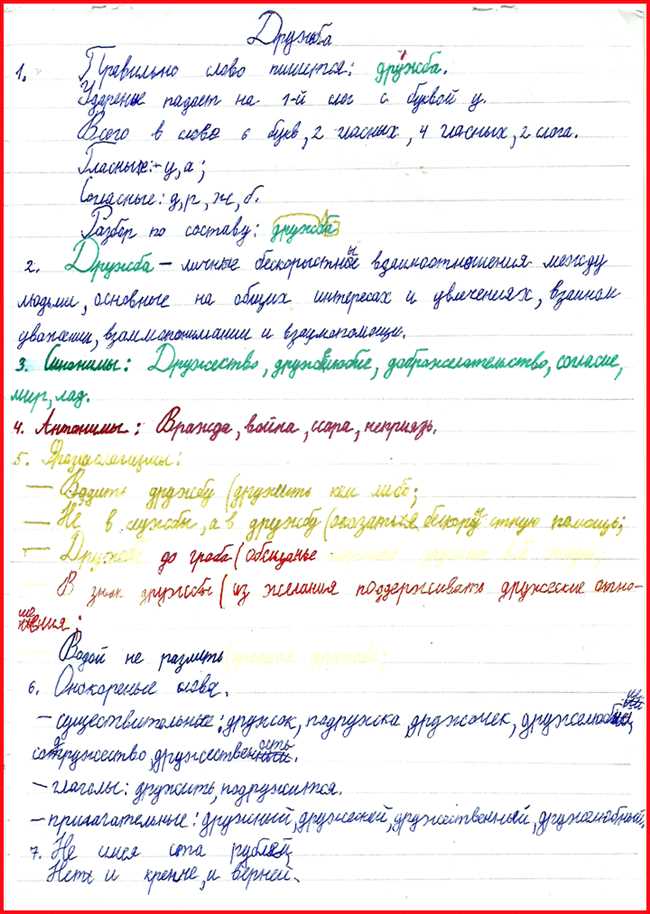 Дружба
1. Правильно слово пишется: дружба.
Ударение падает на 1-й слог с буквой у.
Всего в слове 6 букв, 2 гласных, 4 гласных, 2 слога.
Гласных:- у, а;
Согласные: д, р, ж, б.
Разбор по составу: дружба
2. Дружба – личные бескорыстные взаимоотношения между
людьми, основные на общих интересах и увлечениях, взаимом
уважении, взаимопонимании и взаимопомощи.
3. Синонимы: Дружество, дружелюбие, доброжелательство, согласие,
мир, лад.
4. Антонимы: Вражда, война, ссора, неприязь.
5. Фразеологизмы:
— Водить дружбу (дружить кем либо;
— Не в службы, а в дружбу (оказаться бескорыстную помощь;
— до гроба (обещанье
В знак дружбы (из желания поддерживать дружеские отно-
шения;
Водой не разлить
6. Однокореные слова.
– существительные: дружок, подружка, дружочек,
содружество, дружественность.
– глаголы: дружить, подружится.
– прилагательные: дружный, дружеский, дружественный, дружелюбный.
7. Не имея ста рублей,
и крепче, и верней.